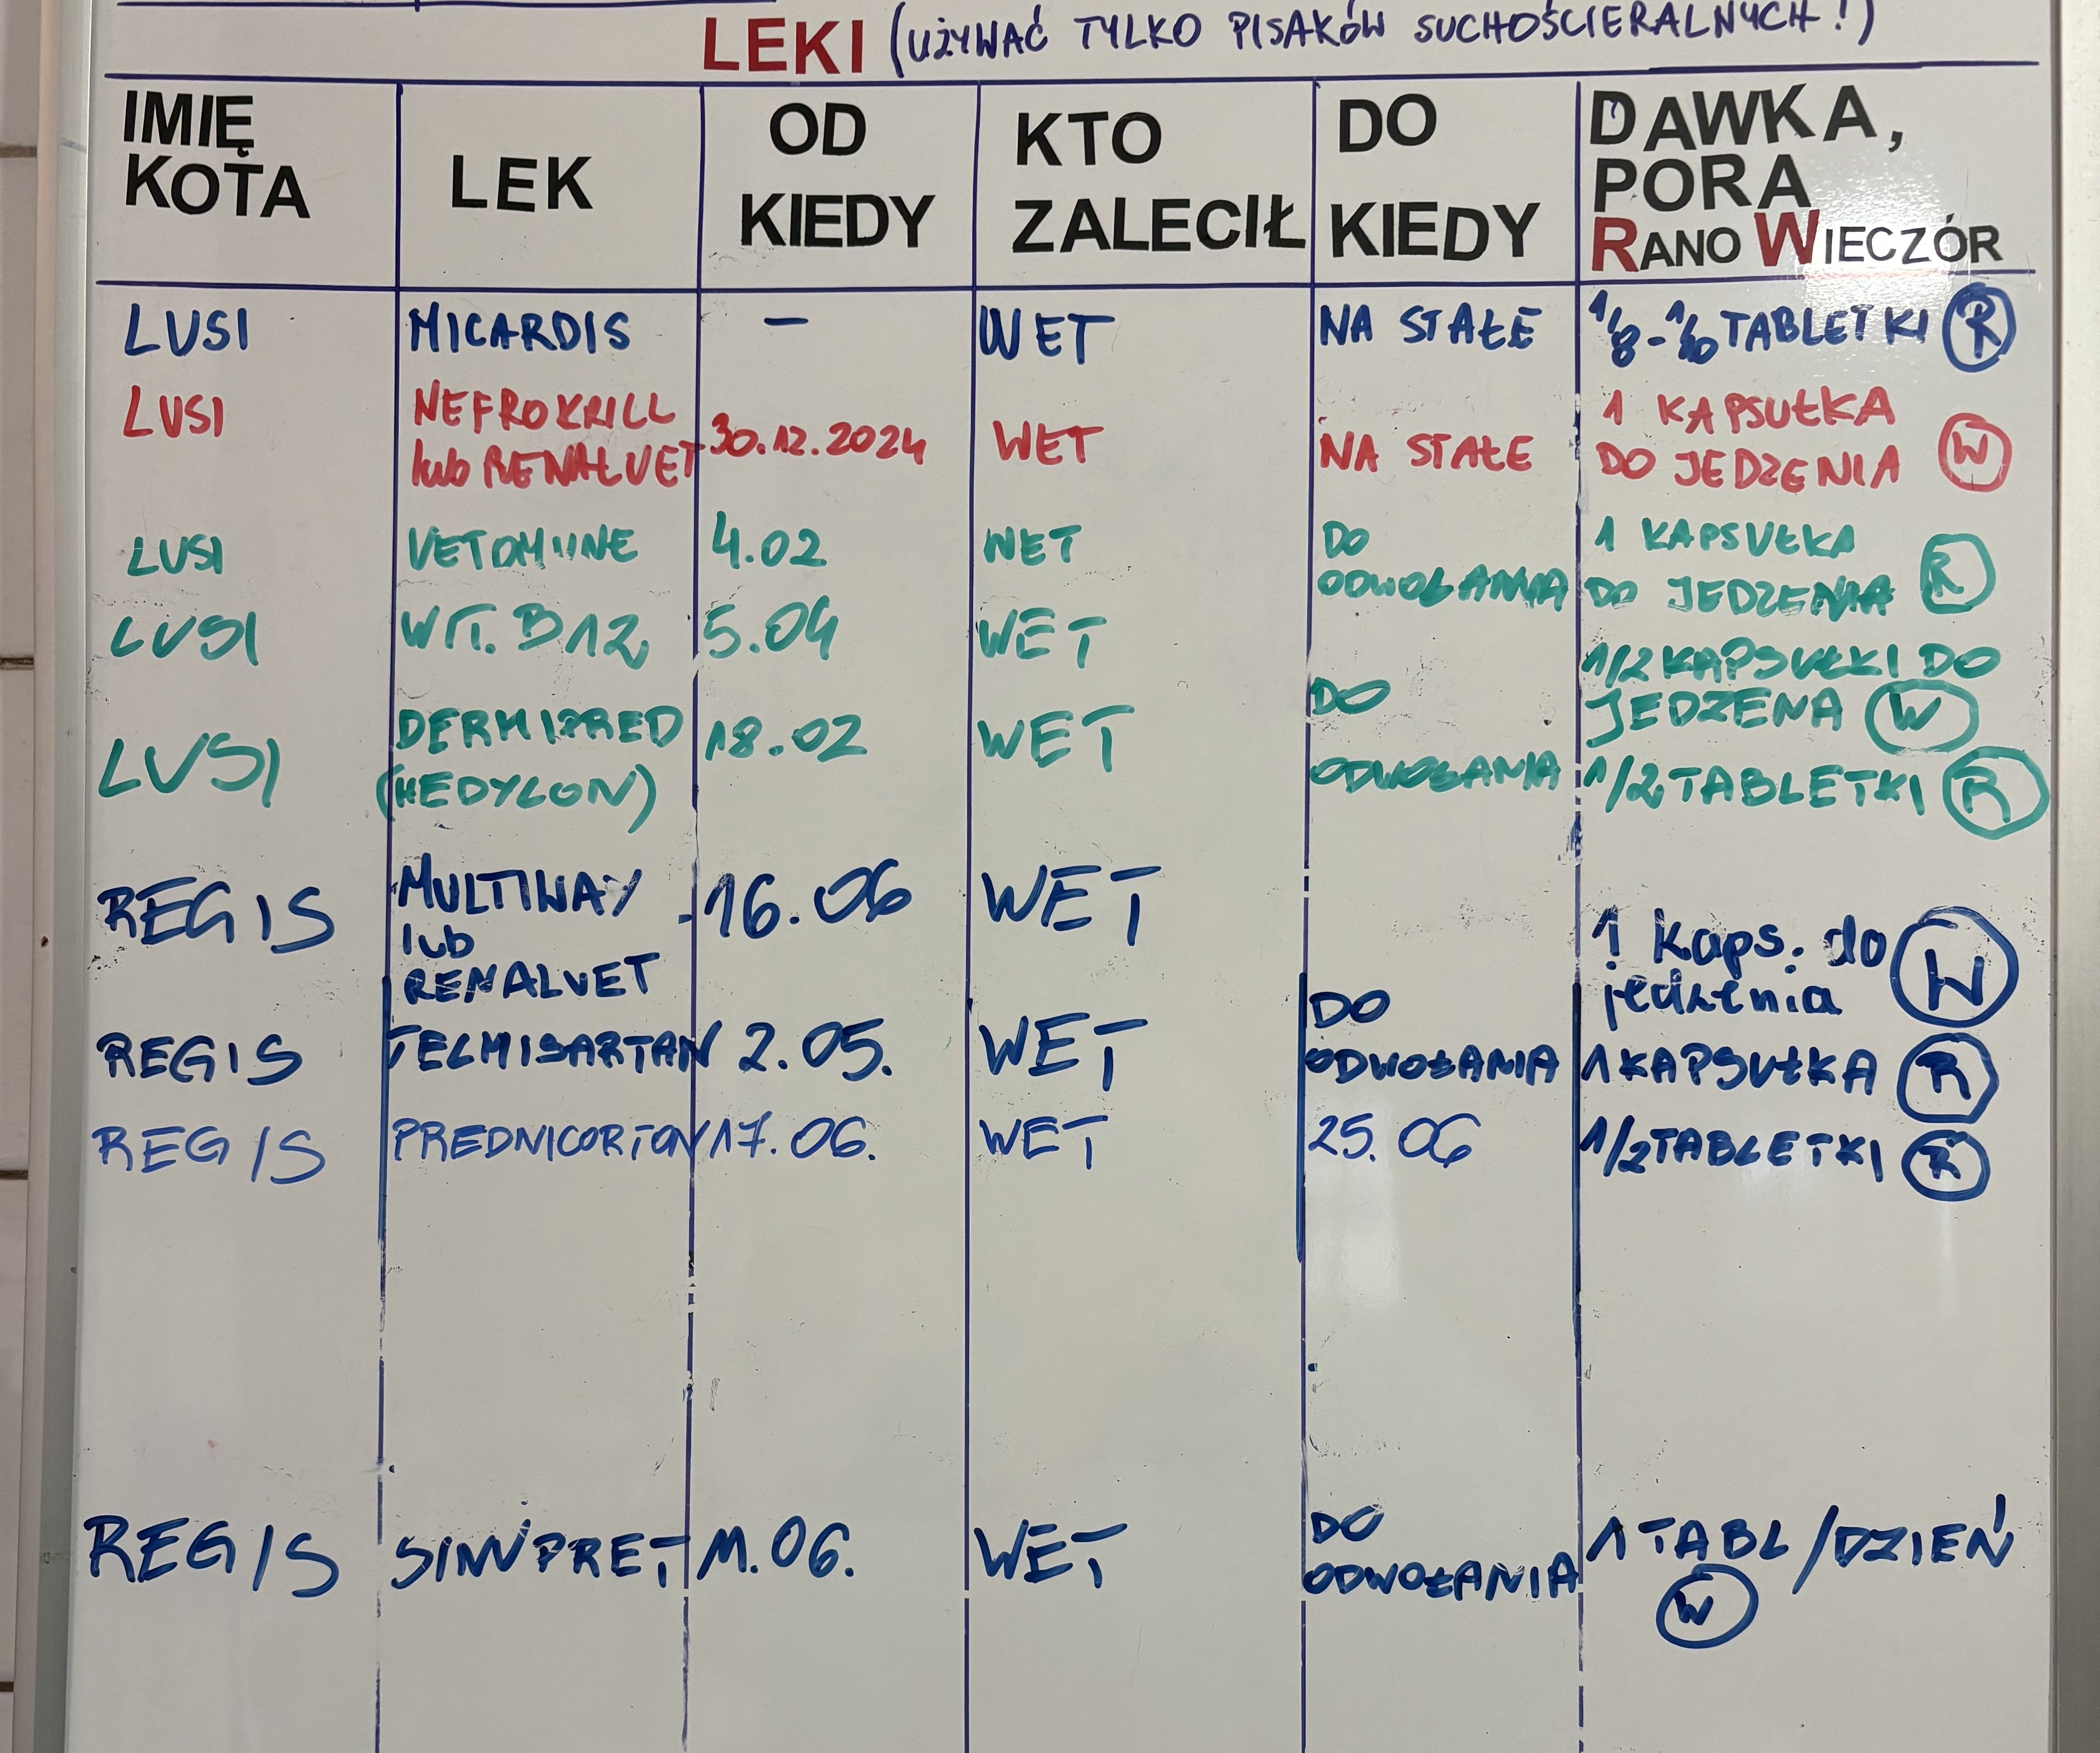 LEKI (UŻYWAĆ TYLKO PISAKÓW SUCHOŚCIERALNYCH!)
IMIĘ KOTA
LEK
OD KIEDY
KTO ZALECIŁ
DO KIEDY
DAWKA, PORA
RANO WIECZÓR
LUSI MICARDIS – WET NA STAŁE 1/8 - 1/10 TABLETKI R
LUSI NEFROKRILL 30.12.2024 WET NA STAŁE 1 KAPSUŁKA
lub RENALVET DO JEDZENIA W
LUSI VETOMUNE 4.02 WET DO 1 KAPSUŁKA
ODWOŁANIA DO JEDZENIA R
LUSI WIT. B12 5.04 WET 1/2 KAPSUŁKI DO
JEDZENA W
LUSI DERMIPRED 18.02 WET DO
(MEDYLON) ODWOŁANIA 1/2 TABLETKI R
REGIS MULTIWAY 16.06 WET 1 kaps. do
lub jedzenia W
RENALVET
REGIS TELMISARTAN 2.05. WET DO
ODWOŁANIA 1 KAPSUŁKA R
REGIS PREDNICORTON 17.06. WET 25.06 1/2 TABLETKI R
REGIS SINUPRET 11.06. WET DO 1 TABL/DZIEŃ
ODWOŁANIA W